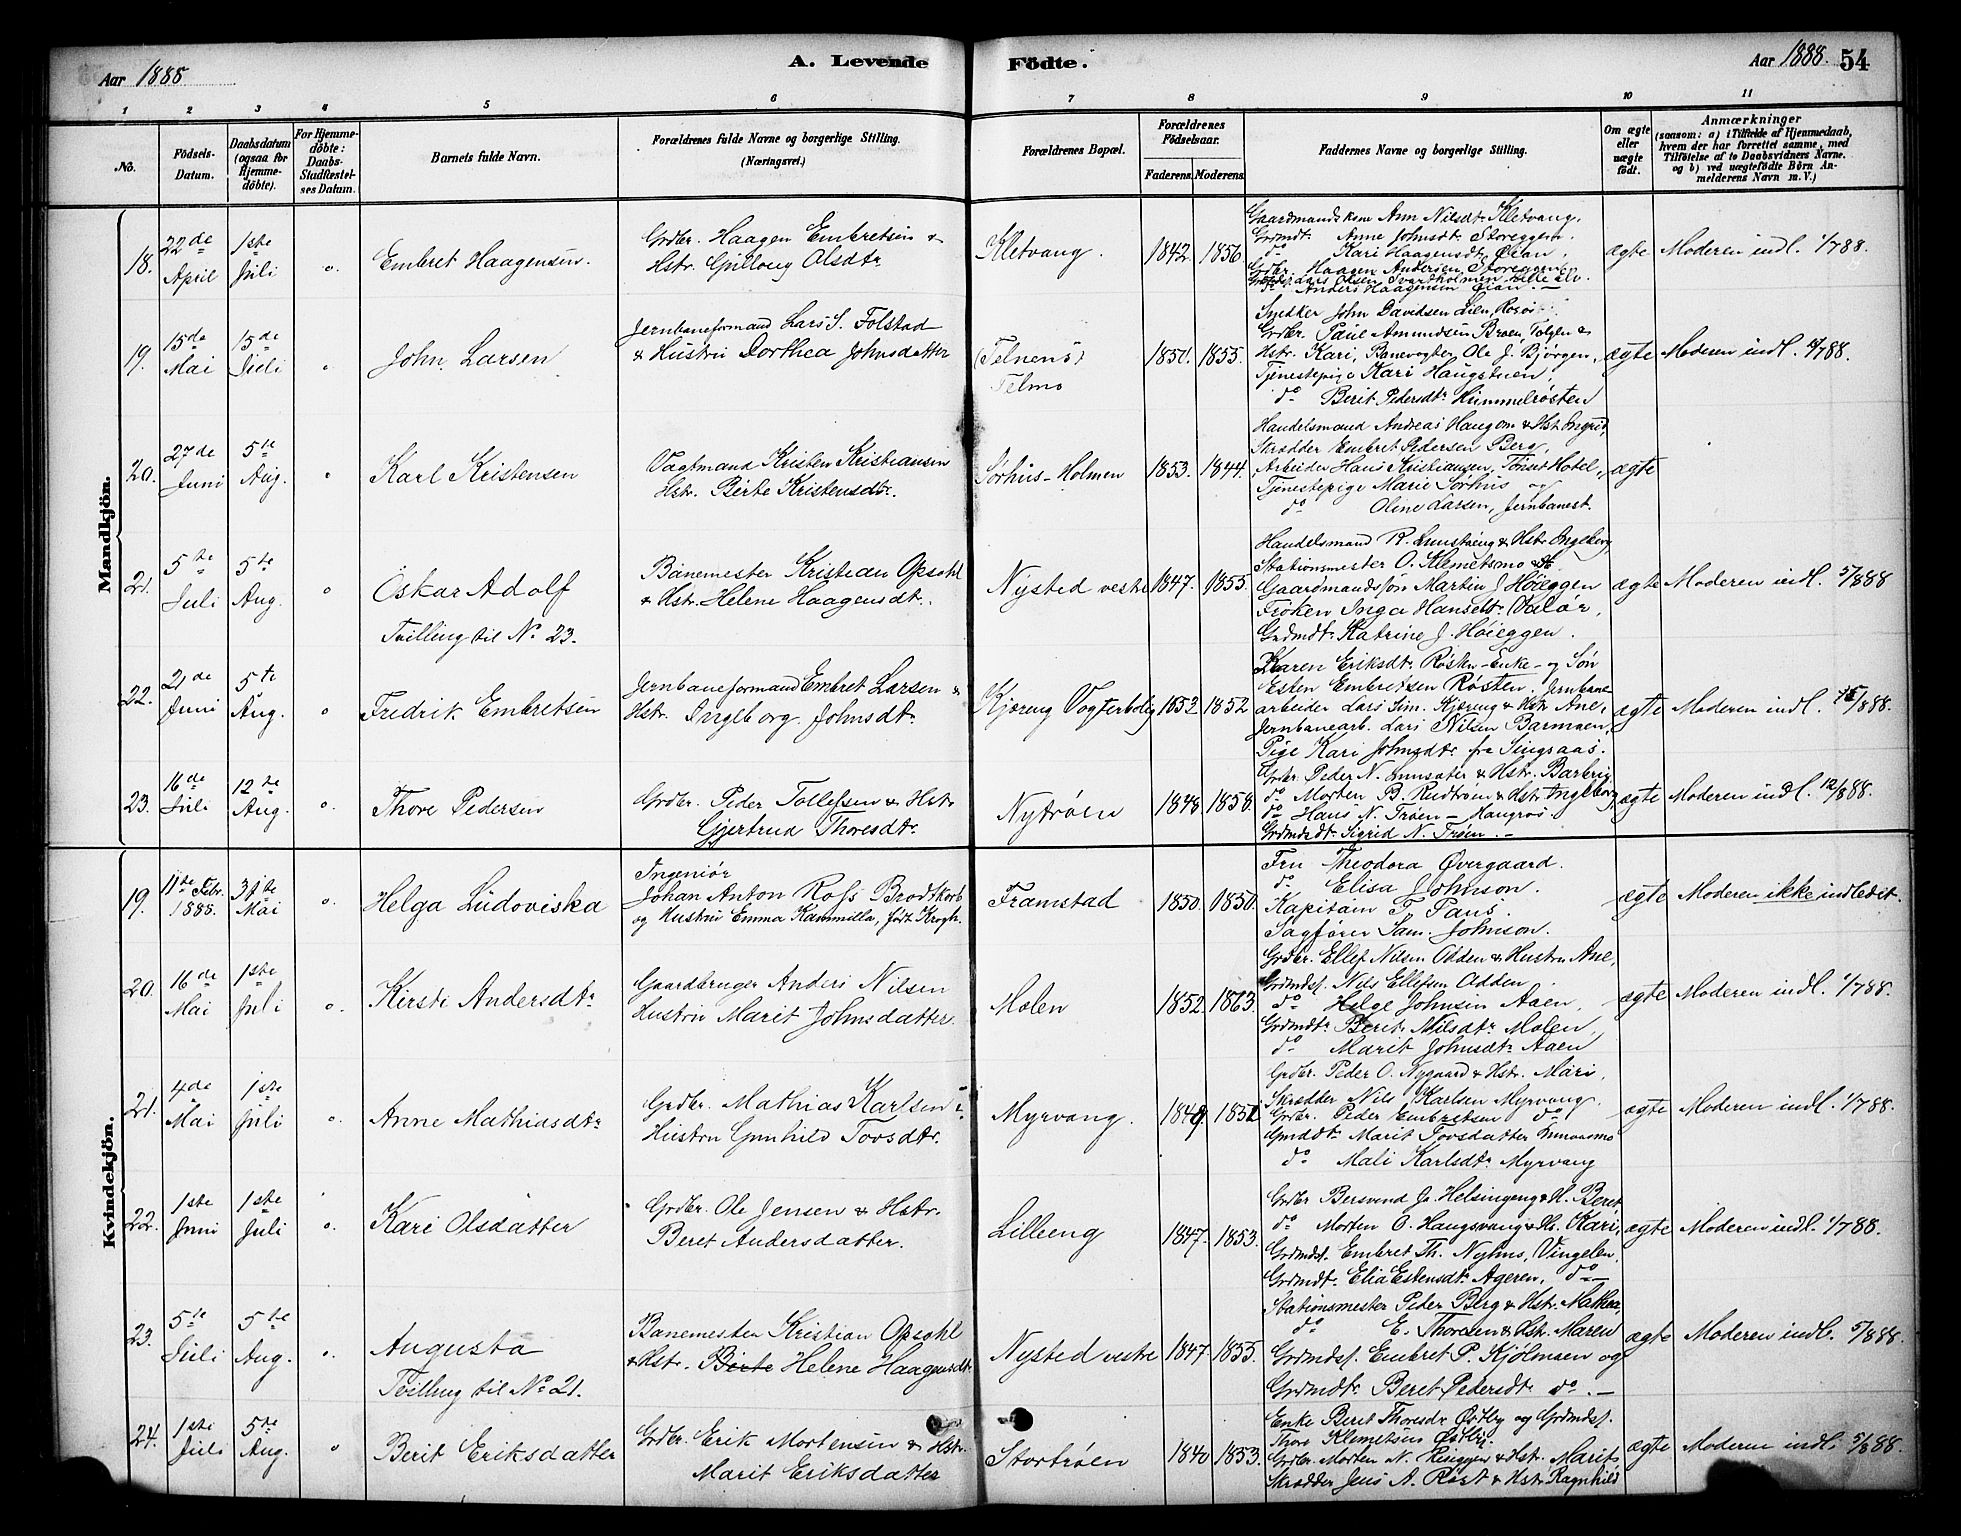 Aar 1888.
A. Levende Födte.
Aar 1888. 54
1 2 3 4 5 6 7 8 9 10 11
No.
Födsels-Datum.
Daabsdatum (ogsaa for Hjemme-döbte).
For Hjemme-döbte: Daabs-Stadfæstel-ses Datum.
Barnets fulde Navn.
Forældrenes fulde Navne og borgerlige Stilling. (Næringsvei.)
Forældrenes Bopæl.
Forældrenes Födselsaar.
Faderens. Moderens.
Faddernes Navne og borgerlige Stilling.
Om ægte eller uægte födt.
Anmærkninger
(saasom: a) i Tilfælde af Hjemmedaab, hvem der har forrettet samme, med Tilföielse af to Daabsvidners Navne. og b) ved uægtefödte Börn An-melderens Navn m. V.)
Mandkjön.
18. 22de April 1ste Juli o. Embret Haagensen.
Grdbr. Haagen Embretsen &
Hstr. Gullaug Olsdtr
Kletvang. 1842. 1856.
Gaardmandskone Ann Nilsdtr Kletvang.
Grdmdtr. Anne Johnsdtr Storeggen.
do Kari Haagensdtr Øian,
Grdbr. Haagen Andersen Storeggen
Anders Haagensen Øian
ægte Moderen indl. 1/788.
19. 15de Mai 15de Juli John Larsen
Jernbaneformand Lars S. Folstad
& Hustru Dorthea Johnsdatter
(TelnenS)
Telmo
1851. 1855.
Snedker John Davidsen Lien, Røros
Grdbr. Paul Amundsen Broen, Tolgen &
Hstr. Kari, Banevogter Ole J. Bjørgen,
Tjenestepige Kari Haugstuen,
do Berit Pedersdtr Hummelrøsten
ægte Moderen indl. 788.
20. 27de Juni 5te Aug. Karl Kristensen
Vagtmand Kristen Kristiansen
Hstr. Berte Kristensdtr.
Sørhus-Holmen 1853. 1844.
Handelsmand Andreas Haugom & Hst. Ingrid,
Skrædder Embret Pedersen Berg,
Arbeider Hans Kristiansen, Tönset Hotel,
Tjenestepige Marie Sørhus og
do Oline Larsen, Jernbanest.
ægte
21. 5te Juli 5te Aug. o Oskar Adolf
Tvilling til No 23.
Banemester Kristian Opsahl
& Hstr. Helene Haagensdtr.
Nysted vestre 1847. 1855.
Handelsmand R. & Hstr. Ingeborg
Stationsmester O. Klemetsmo
Gaardmandssøn Martin J Høieggen
Frøken Inga Hansdtr
Grdmdtr. Katrine J. Høieggen.
ægte Moderen indl. 5/888
22. 21de Juni 5te Aug. o Fredrik Embretsen
Jernbaneformand Embret Larsen &
Hstr. Ingeborg Johnsdtr.
Kjøreng Vogterbolig 1852 1852
Karen Eriksdtr. Røsten - Enke - og Søn
Esten Embretsen Røsten. Jernbane
arbeider Lars Sim. Kjøreng & Hstr Ane,
Jernbanearb. Lars Nilsen Barmoen,
Pige Kari Johnsdtr. fra Singsaas.
ægte Moderen indl. 5/888.
23. 16de Juli 12te Aug. o. Thore Pedersen
Grdbr. Peder Tollefsen & Hstr
Gjertrud Thoresdtr.
Nytrøen 1848 1858.
Grdbr. Peder N. & Hstr. Barbrig
do Morten B. Rudtrøen & Hstr Ingeborg
do Hans N. Trøen - Haugros.
Grdmdsdtr. Sigrid N. Trøen. -
ægte Moderen indl. 12/888.
Kvindekjön.
19. 11te Febr. 1888. 31te Mai o. Helga Ludoviska
Ingeniør
Johan Anton Ross Brodtkorb
og Hustru Emma Kammilla, født Krogh.
Framstad 1850. 1850.
Fru Theodora Øvergaard.
do Elisa Johnson.
Kapitain T. Paus.
Sagfører Sam. Johnson.
ægte Moderen ikke indledet.
20. 16de Mai 1ste Juli o. Kirsti Andersdtr
Gaardbruger Anders Nilsen
Hustru Marit Johnsdatter.
Molen 1852. 1863.
Grdbr. Ellef Nilsen Odden & Hustru Ane,
Grdmdss. Nils Ellefsen Odden
do Helge Johnsen Aaen,
Grdmdtr Berit Nilsdtr Molen,
do Marit Johnsdtr Aaen
ægte Moderen indl. 1/788.
21. 4de Mai 1ste Juli o. Anne Mathiasdtr
Grdbr. Mathias Karlsen
Hustru Gunhild Tovsdtr.
Myrvang. 1849. 1852
Grdbr. Peder O. Nygaard & Hstr. Mari,
Skrædder Nils Karlsen Myrvang,
Grdbr. Peder Embretsen do
Marit Tovsdatter
do Mali Karlsdtr Myrvang
ægte Moderen indl. 1/788.
22. 1ste Juni 1ste Juli o. Kari Olsdatter
Grdbr. Ole Jensen & Hstr.
Beret Andersdatter.
Lilleeng 1847. 1853.
Grdbr Bersvend J. Helsingeng & H. Beret,
do Morten O. Haugsvang & H. Kari,
Grdmdss. Embret Th. Nyhus, Vingelen.
Grdmdtr. Elia Estensdtr Ageren, do
ægte Moderen indl. 1/788.
23. 5te Juli 5te Aug. o. Augusta
Tvilling til No 21.
Banemester Kristian Opsahl
& Hstr. Berte Helene Haagensdtr.
Nysted vestre 1847. 1855.
Stationsmester Peder Berg & Hstr. Mathea,
do E. Thoresen & Hstr. Maren
Grdmdss. Embret P. Kjølmoen og
Grdmdtr Beret Pedersdtr do. -
ægte Moderen indl. 5/888.
24. 1ste Juli 5te Aug. o Berit Eriksdatter
Grdbr. Erik Mortensen & Hstr.
Marit Eriksdatter
Stortrøen 1840 1853.
Enke Beret Thoresdr Østby og Grdmdss.
Thore Klemetsen Østby.
Grdbr. Morten N. & Hstr. Marit
Skrædder Jens A. Røst & Hstr Ragnhild
ægte Moderen indl. 5/888.